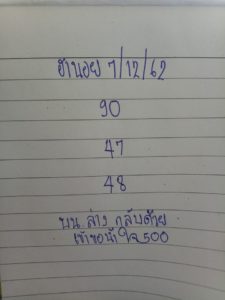 ฮานอย 7/12/62
90
47
48
บน ล่าง กลับด้วย
เข้าขอน้ำใจ 500